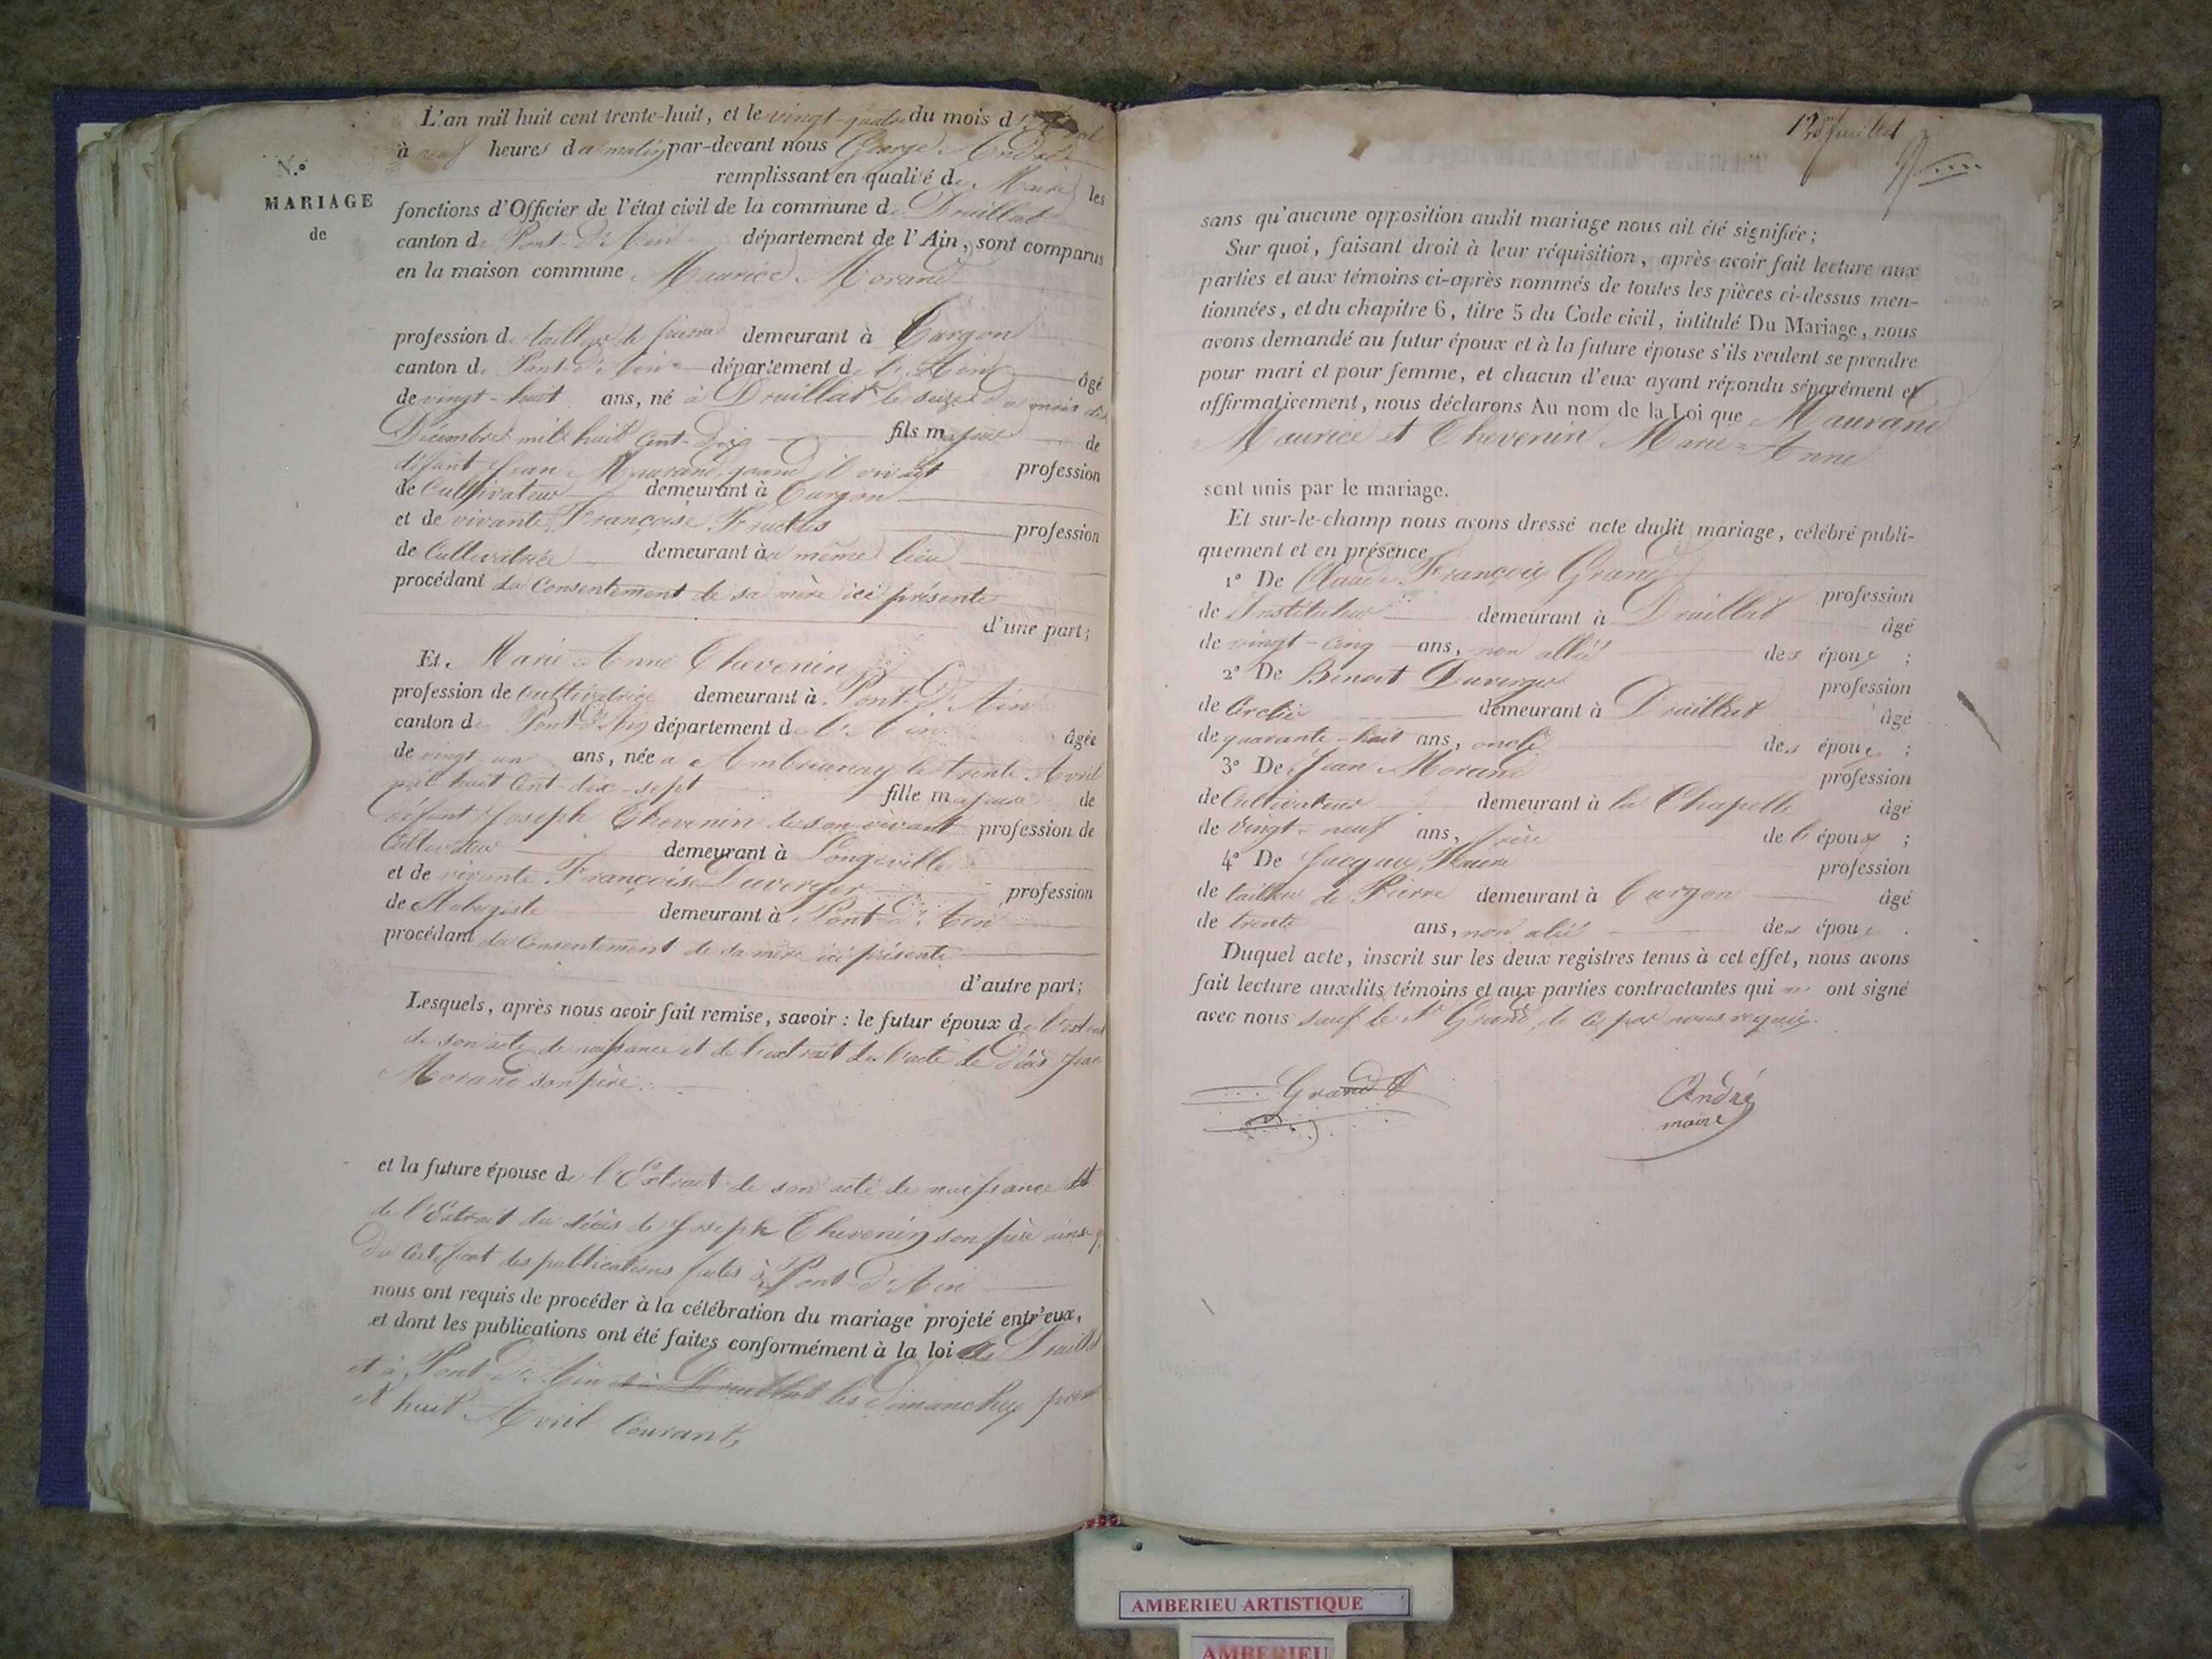 L'an mil huit cent trente-huit, et le vingt-quatre du mois d'Avril
à neuf heures du matin par-devant nous George André
remplissant en qualité de Maire les
N.°
MARIAGE
de
fonctions d'Officier de l'état civil de la commune de Druillat
canton de Pont-d'Ain département de l'Ain, sont comparus
en la maison commune Maurice Morand
profession de tailleur de pierre demeurant à Turgon
canton de Pont-d'Ain département de l'Ain âgé
de vingt-huit ans, né à Druillat le seize du mois de
Décembre mil huit Cent-Dix fils majeur de
défunt Jean Maurand quand il vivait profession
de Cultivateur demeurant à Turgon
et de vivante Françoise Fructus profession
de Cultivatrice demeurant au même lieu
procédant du Consentement de sa mère ici présente
d'une part;
Et, Marie Anne Thevenin
profession de Cultivatrice demeurant à Pont-d'Ain
canton de Pont d'Ain département de l'Ain âgée
de vingt un ans, née à Ambronay le trente Avril
mil huit Cent-dix-sept fille majeure de
défunt Joseph Thevenin de son vivant profession de
Cultivateur demeurant à Longeville
et de vivante Françoise Duverger profession
de Aubergiste demeurant à Pont-d'Ain
procédant du Consentement de sa mère ici présente
d'autre part;
Lesquels, après nous avoir fait remise, savoir : le futur époux de l'extrait
de son acte de naissance et de l'extrait de l'acte de Décès Jean
Morand son père.
et la future épouse de l'Extrait de son acte de naissance et
de l'Extrait du décès de Joseph Thevenin son père ainsi q
Du Certificat des publications faites à Pont-d'Ain
nous ont requis de procéder à la célébration du mariage projeté entr'eux,
et dont les publications ont été faites conformément à la loi à Druillat
et à Pont d'Ain et à Druillat les dimanches premier
et huit Avril Courant,
12e feuillet
sans qu'aucune opposition audit mariage nous ait été signifiée;
Sur quoi, faisant droit à leur réquisition, après avoir fait lecture aux
parties et aux témoins ci-après nommés de toutes les pièces ci-dessus men-
tionnées, et du chapitre 6, titre 5 du Code civil, intitulé Du Mariage, nous
avons demandé au futur époux et à la future épouse s'ils veulent se prendre
pour mari et pour femme, et chacun d'eux ayant répondu séparément et
affirmativement, nous déclarons Au nom de la Loi que Maurand
Maurice et Thevenin Marie-Anne
sont unis par le mariage.
Et sur-le-champ nous avons dressé acte dudit mariage, célébré publi-
quement et en présence
1° De Claude François Grand profession
de Instituteur demeurant à Druillat âgé
de vingt-cinq ans, non allié des époux ;
2° De Benoit Duverger profession
de demeurant à Druillat âgé
de quarante-huit ans, oncle des époux ;
3° De Jean Morand profession
de Cultivateur demeurant à la Chapelle âgé
de Vingt-neuf ans, frère de l'époux ;
4° De Jacques profession
de tailleur de Pierre demeurant à Turgon âgé
de trente ans, non allié des époux .
Duquel acte, inscrit sur les deux registres tenus à cet effet, nous avons
fait lecture auxdits témoins et aux parties contractantes qui n' ont signé
avec nous sauf le Sr Grand, de ce par nous requis.
Grand
André
maire
AMBERIEU ARTISTIQUE
AMBERIEU